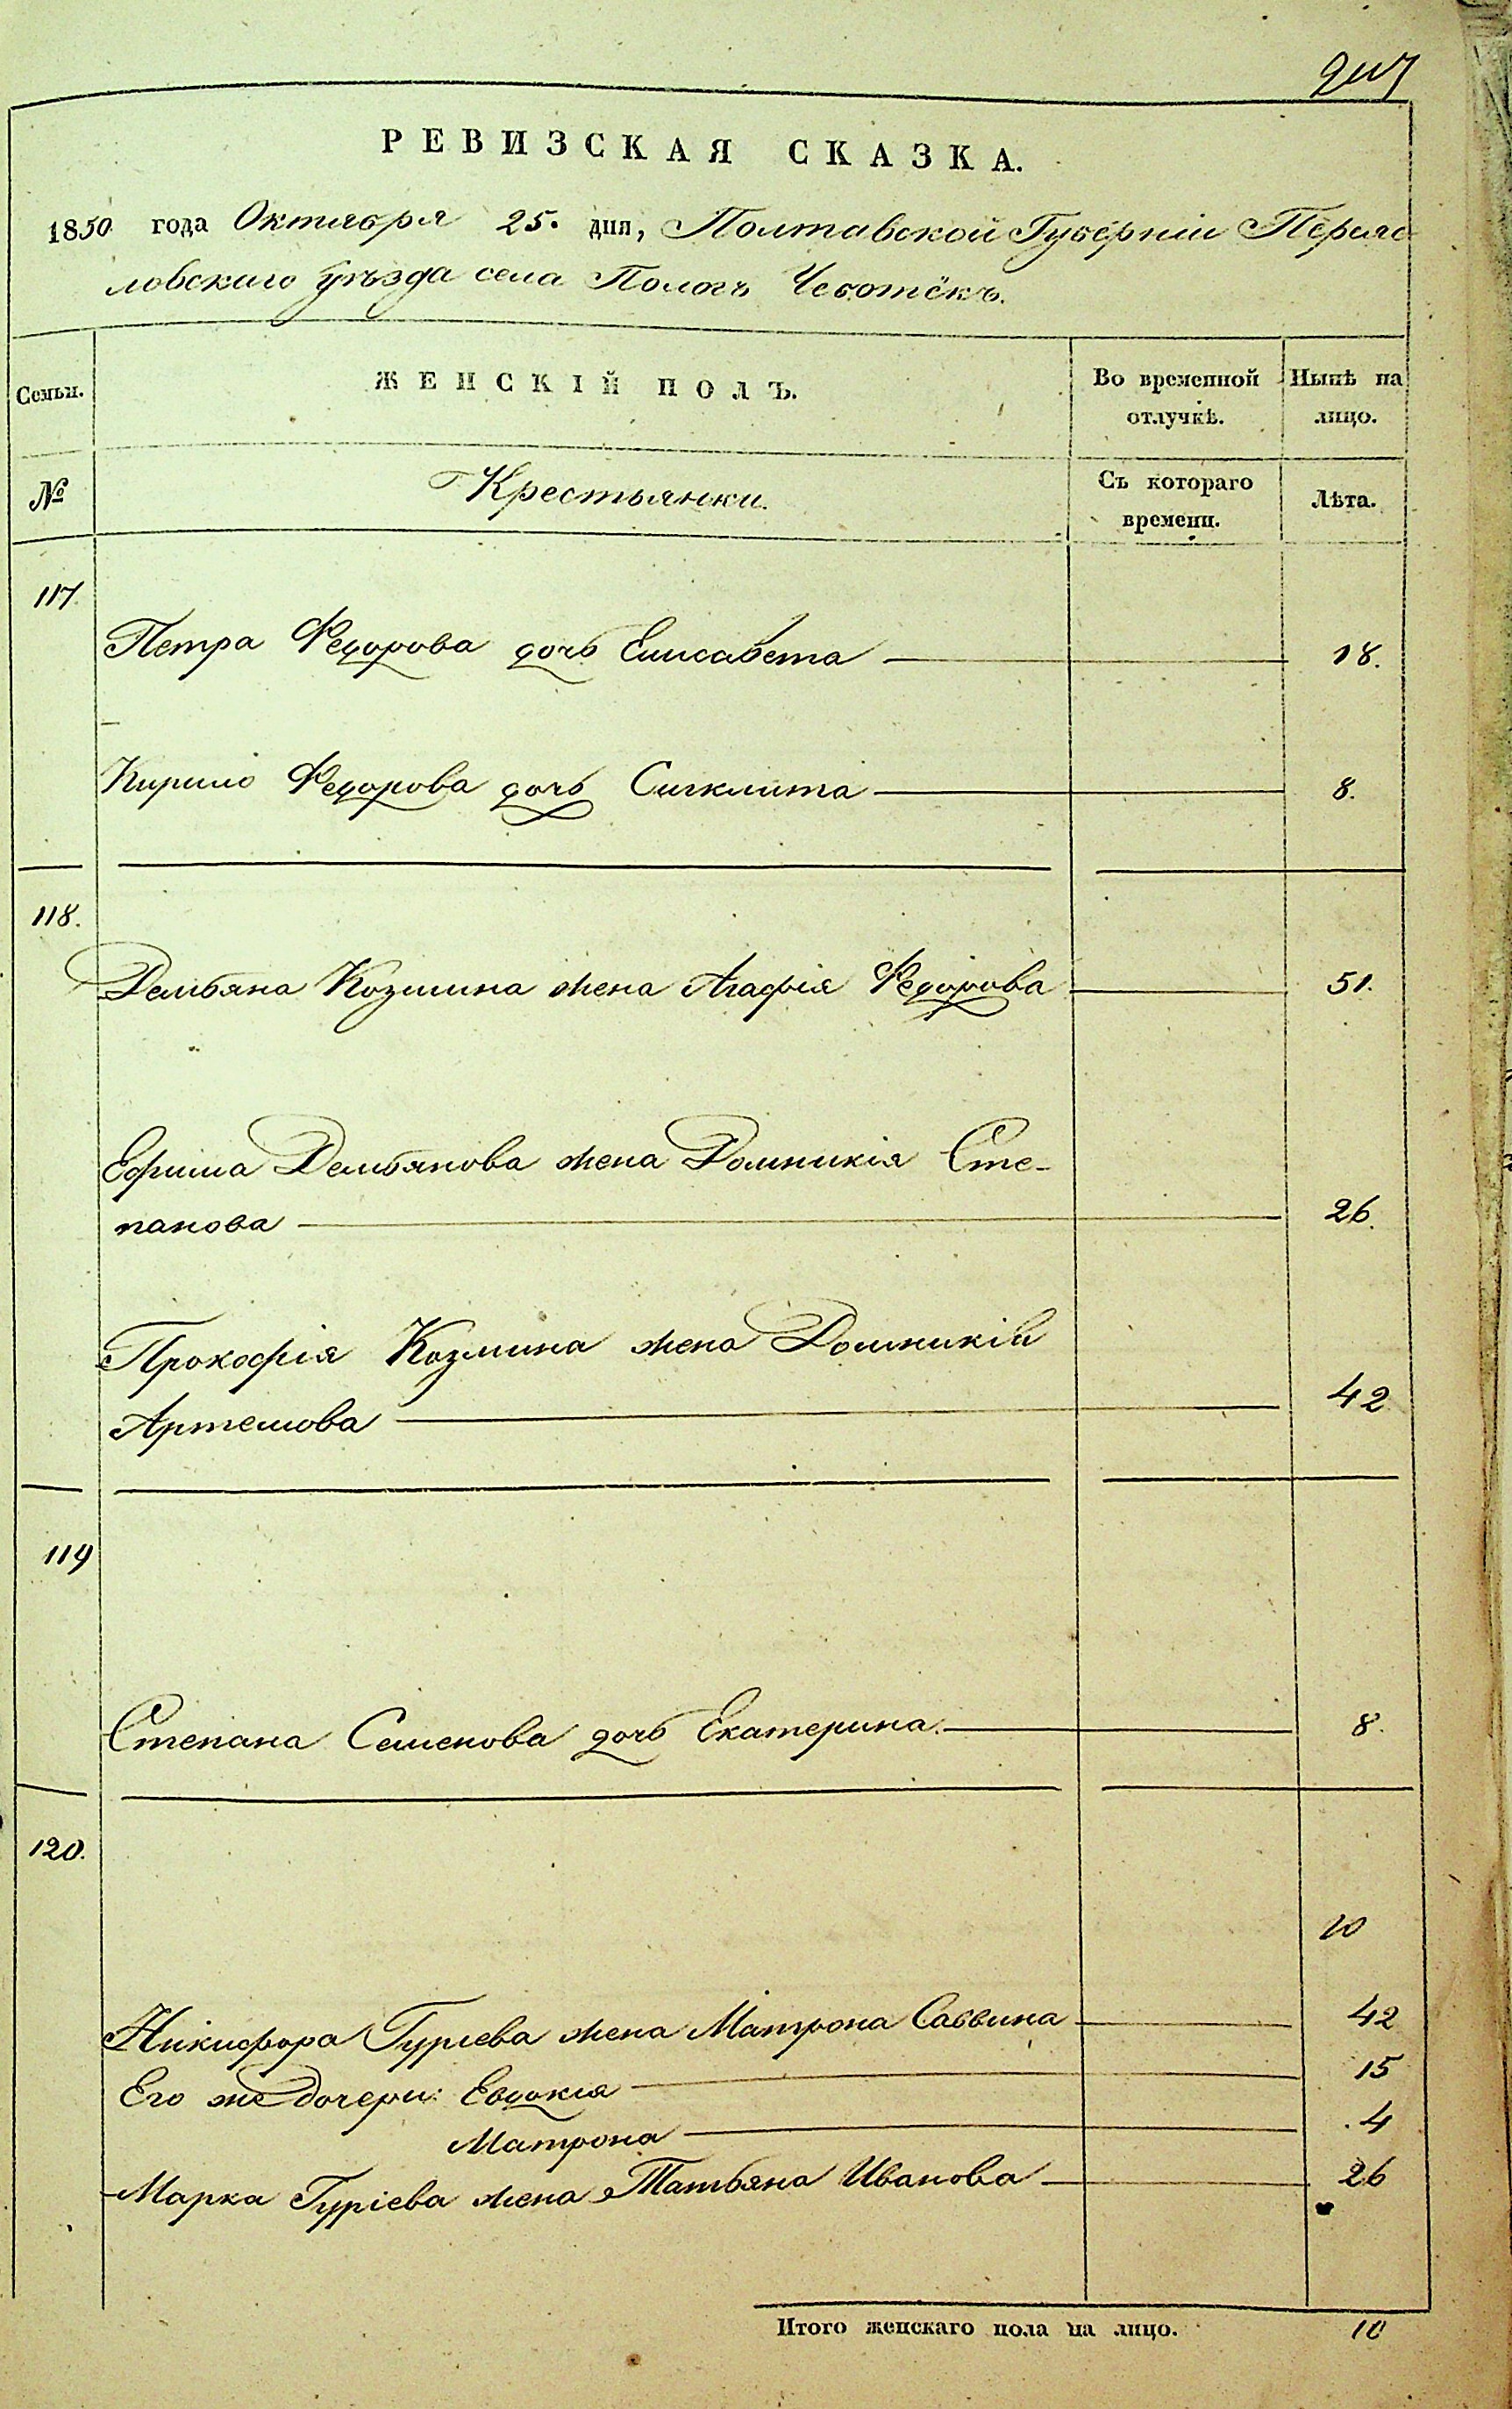 РЕВИЗСКАЯ СКАЗКА.
1850 года Октября 25. дня, Полтавской Губерніи Переяс
ловскаго уѣзда села Пологъ Чеботёкъ.
Семьи.
ЖЕНСКІЙ ПОЛЪ.
Во временной
отлучкѣ.
Нынѣ на
лицо.
№
Крестьянки.
Съ котораго
времени.
Лѣта.
117.
Петра Федорова дочь Елисавета 18.
Кирило Федорова дочь Сигклита 8.
118.
Демьяна Козмина жена Агафія Федорова 51.
Ефима Демьянова жена Домникія Сте-
панова 26.
Прокофія Козмина жена Домникія
Артемова 42
119
Степана Семенова дочь Екатерина. 8.
120.
10
Никифора Гуріева жена Матрона Саввина 42
Его же дочери: Евдокія 15
Матрона 4
Марка Гуріева жена Татьяна Иванова 26
Итого женскаго пола на лицо. 10